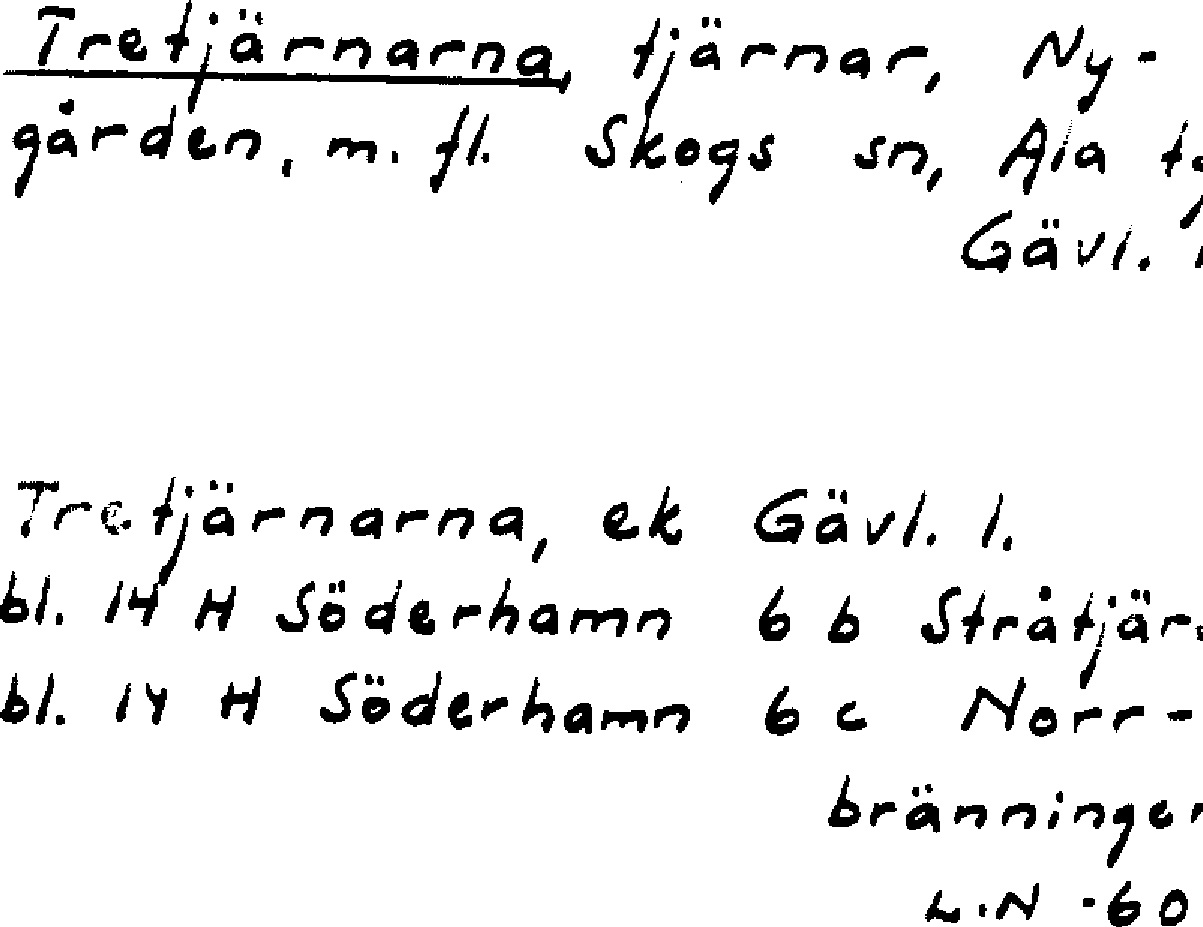 Tretjärnarna, tjärnar, Ny-
gården, m. fl. Skogs sn, Ala
Gävl.
Tretjärnarna, ek Gävl. l.
bl. 14 H Söderhamn 6 b Stråtjär
bl. 14 H Söderhamn 6 c Norr-
bränningen
L.N -60